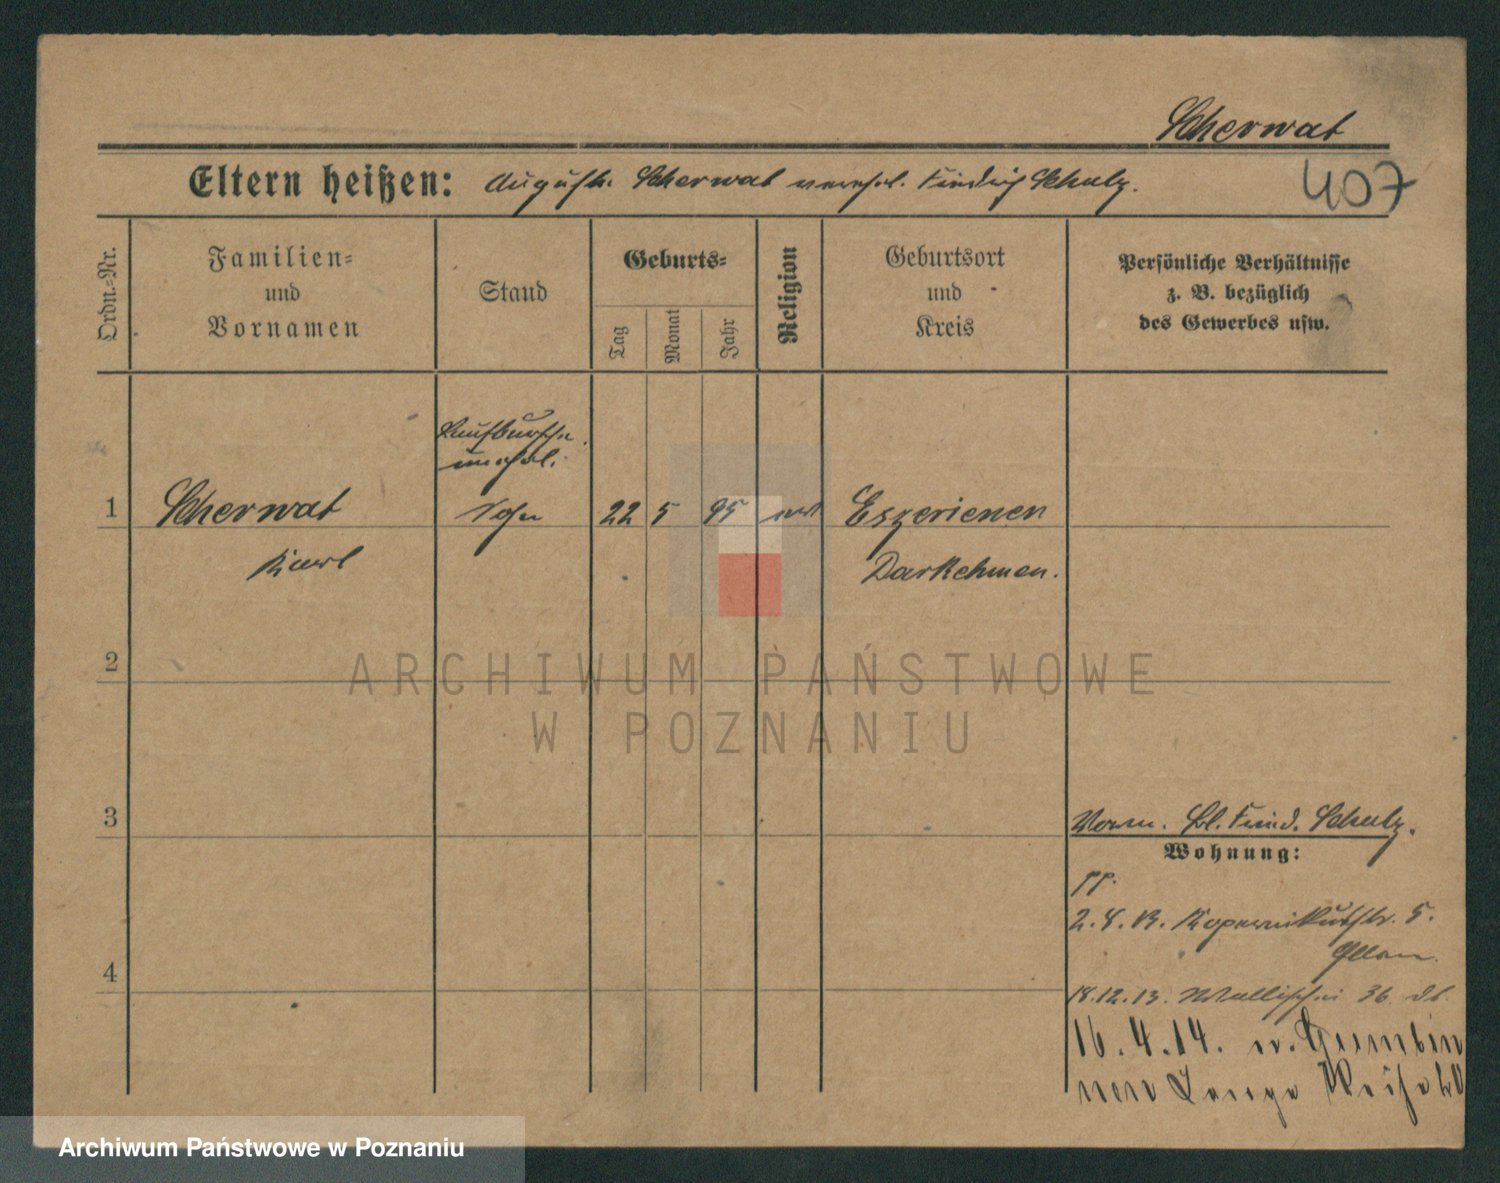 Scherwat
407
Eltern heißen: Auguste Scherwat verehel. Friedrich Schulz.
Ordn.-Nr.
Familien-
und
Vornamen
Stand
Geburts-
Tag
Monat
Jahr
Religion
Geburtsort
und
Kreis
Persönliche Verhältnisse
z. B. bezüglich
des Gewerbes usw.
Laufbursche.
unehel.
1 Scherwat Sohn 22 5 95 Eszerienen
Karl Darkehmen.
2
ARCHIWUM PAŃSTWOWE
W POZNANIU
3
Vorm. Fried. Schulz.
Wohnung:
pp.
2.8.13. Kopernikusstr. 5.
4
18.12.13. Wallischei 36
16.4.14. Gumbin
nen Lange Reihe
Archiwum Państwowe w Poznaniu